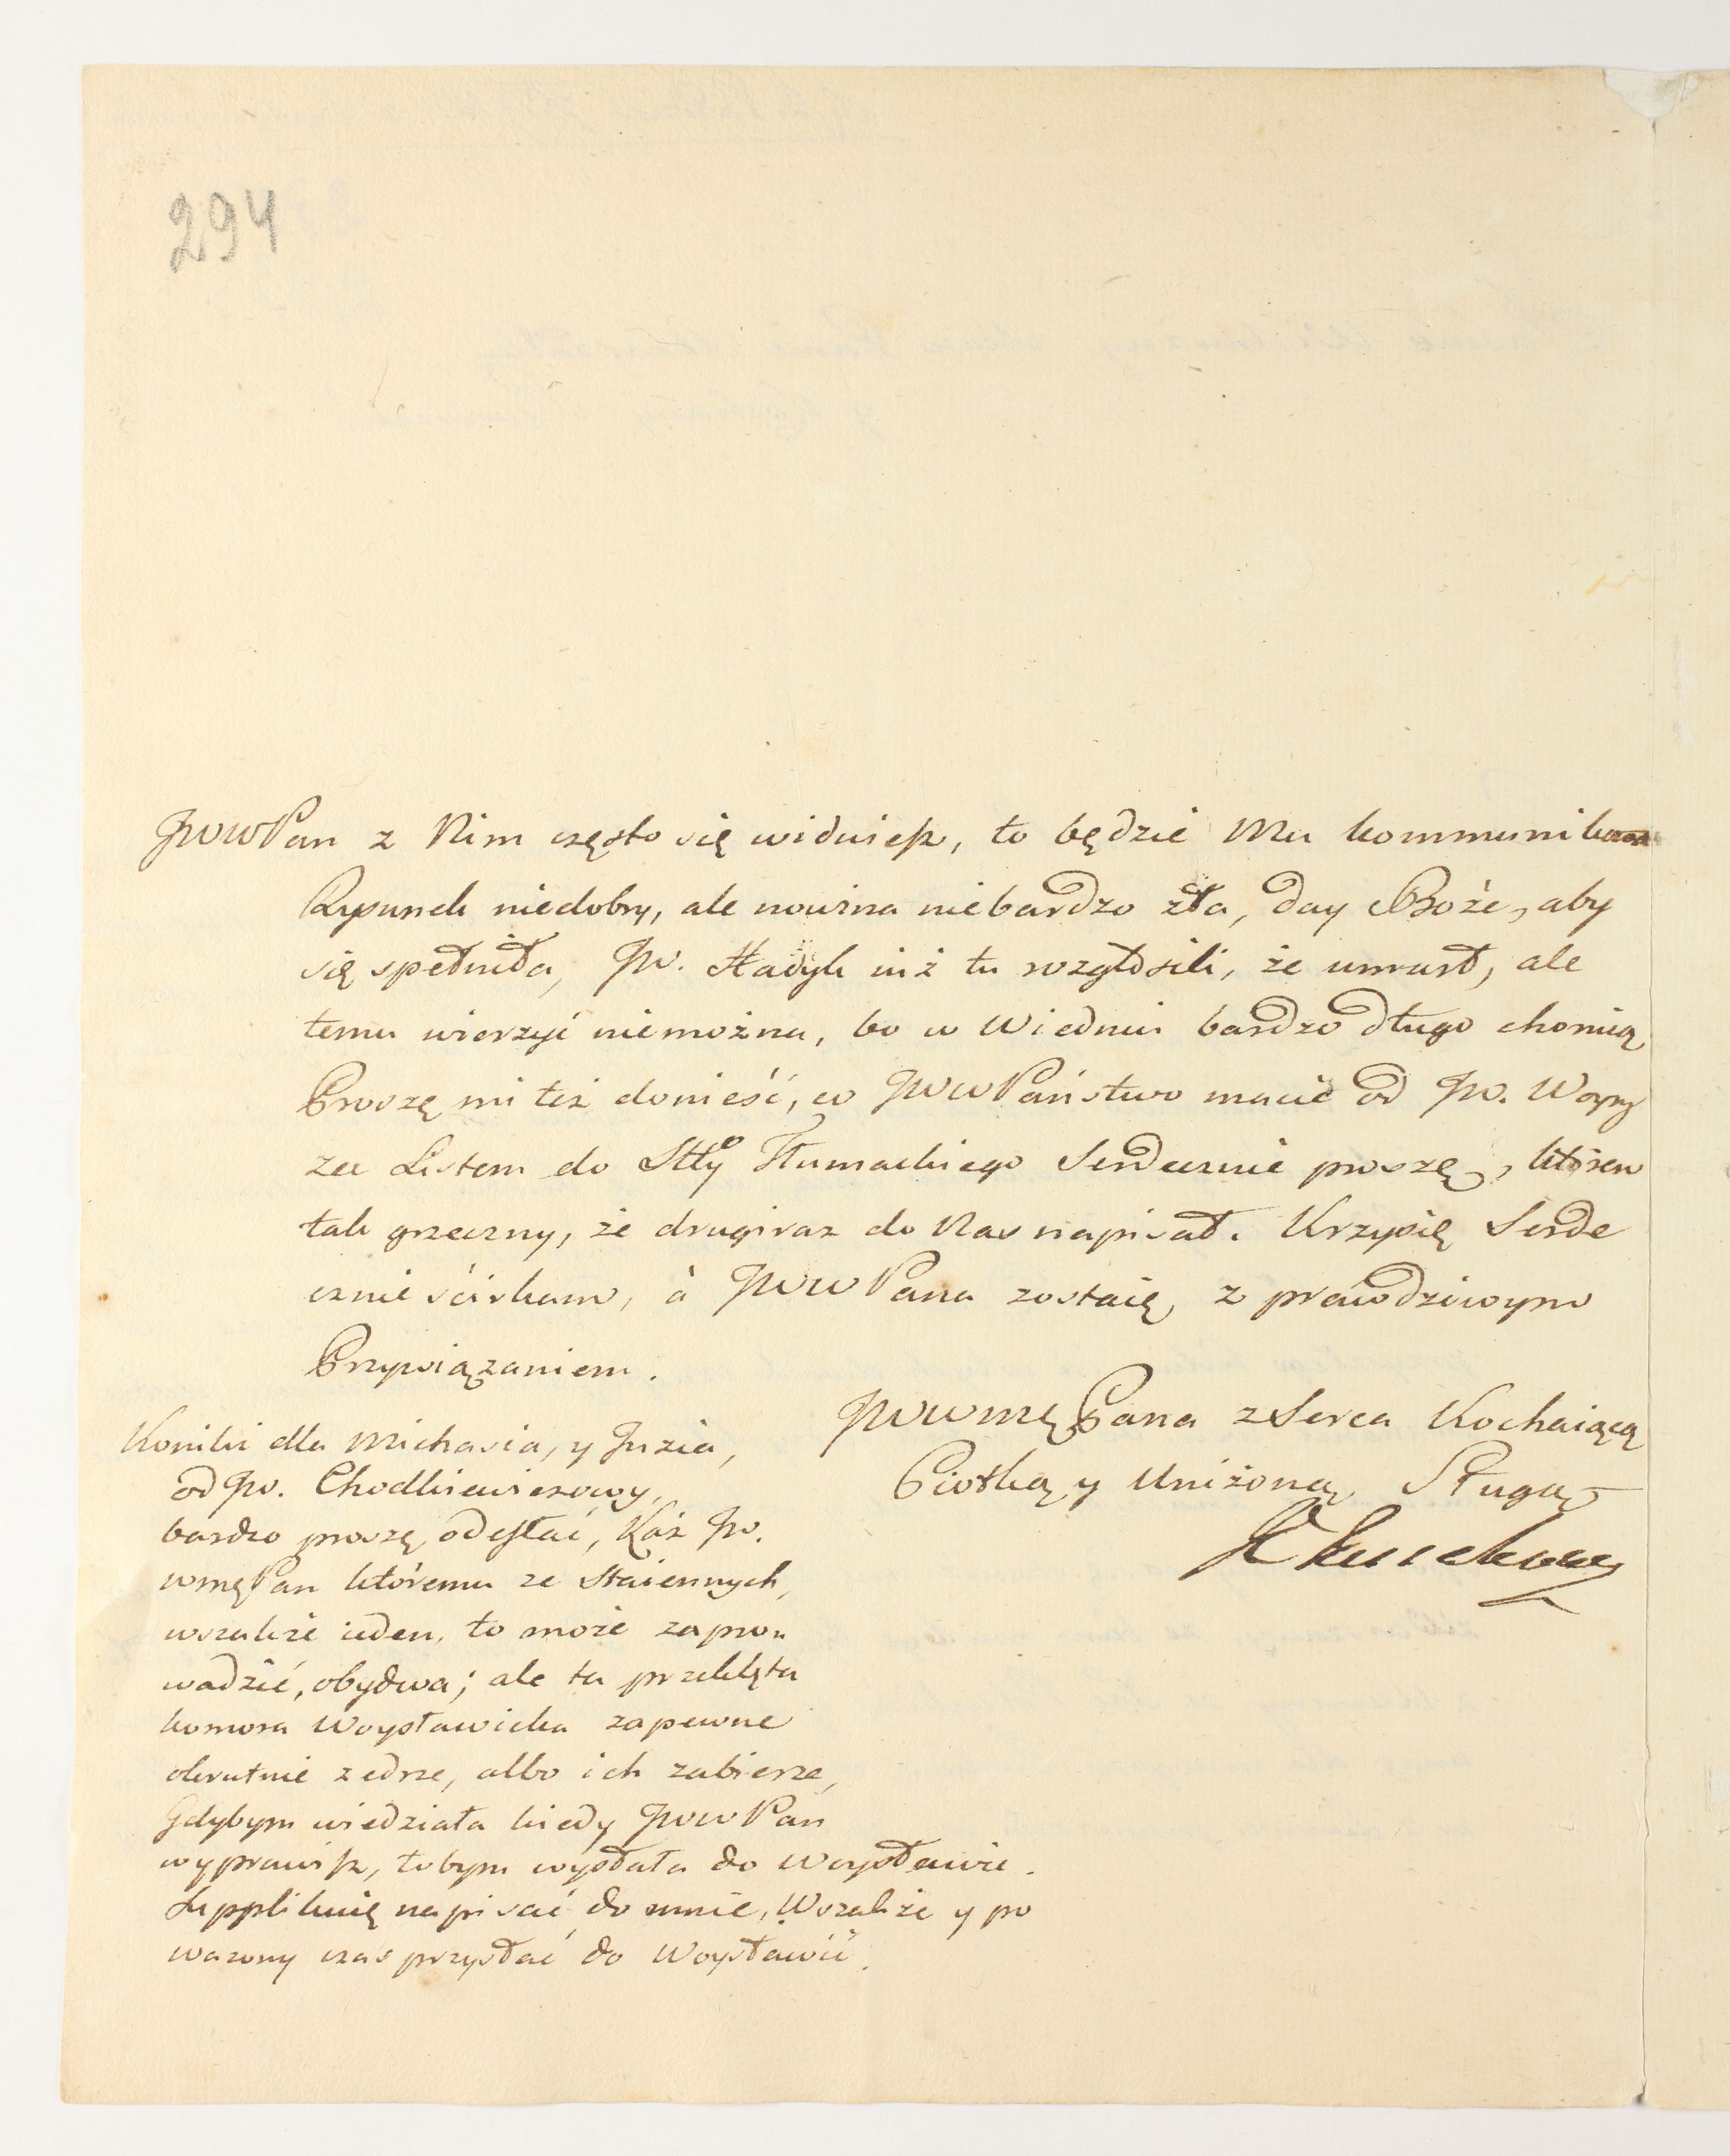 294
JWWPan z Nim często się widuiesz, to będzie Mu kommunikował
Rysunek niedobry, ale nowina niebardzo zła, day Boże, aby
się spełniła, JW. Hadyk iuż tu rozgłosili, że umarł, ale
temu wierzyć niemożna, bo w Wiedniu bardzo długo choruią
Proszę mi też donieść, co JWWPaństwo macie od JW. Woyny
za Listem do Sttły Tłumackiego Serdecznie proszę, któren
tak grzeczny, że drugiraz do Nas napisał. Krzysię Serde
cznie ściskam, à JWWPana zostaię, z prawdziwym
Przywiązaniem.
JWWMęPana z Serca Kochaiącą
Ciotką y Uniżoną Sługą
Koniki dla Michasia, y Juzia,
od JW. Chodkiewiczowy,
bardzo proszę odesłać, Każ JW.
WmęPan któremu ze Staiennych,
wszakże ieden, to może zapro„
wadzić, obydwa; ale ta przeklęta
komora Woysławicka zapewne
okrutnie zedrze, albo ich zabierze,
Gdybym wiedziała kiedy JWWPan
wyprawisz, tobym wysłała do Woysławic.
Supplikuię napisać do mnie, Wszakże y po
wazony czas przysłać do Woysławic.